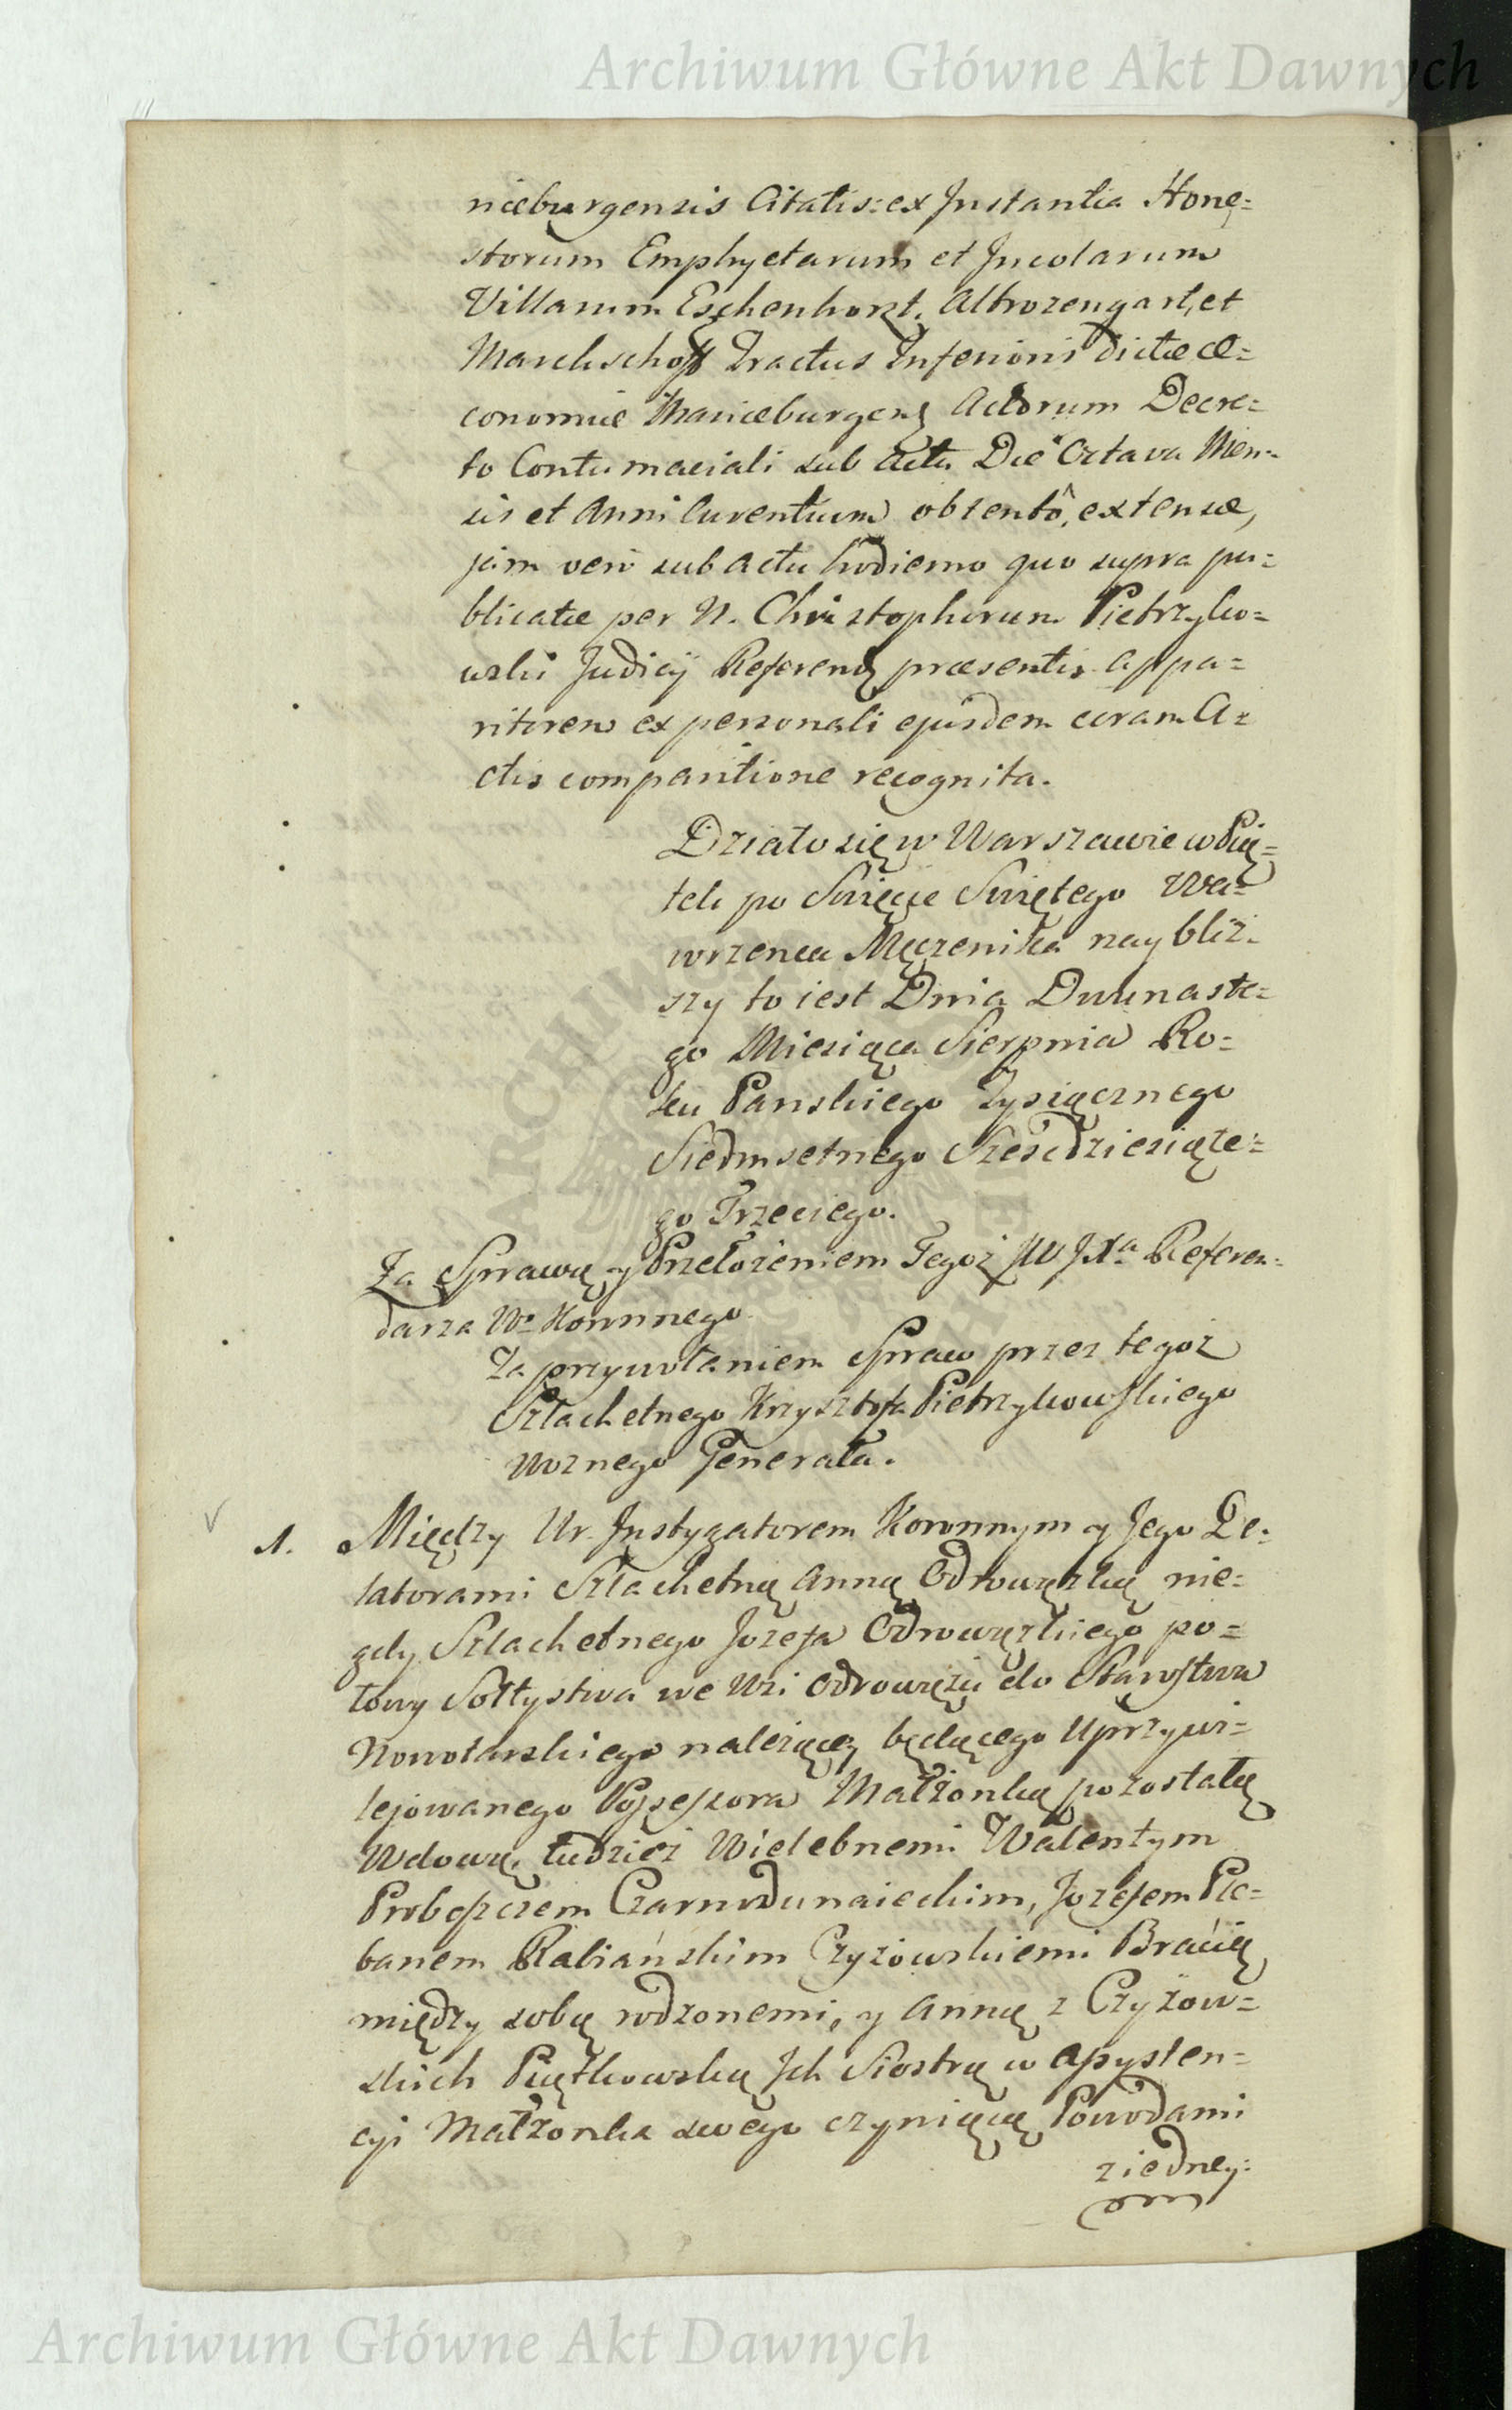 Archiwum Główne Akt Dawnych
niæburgensis Citatis: ex Instantia Hone=
storum Emphyetarum et Incolarum
Villarum Eschenhorst, Altrozengart, et
Marchschoff Tractus Inferioris dictæ œ=
conomiæ Mariæburgens Actorum Decre=
to Contumaciali sub actu Die Octava Men=
sis et Anni Curentium obtentô, extensæ,
jam verò sub actu hodierno quo supra pu=
blicatæ per N. Christophorum Pietrzyko=
wski Judicÿ Referend præsentis appa=
ritorem ex personali ejusdem coram A=
ctis comparitione recognita.
Działo się w Warszawie w Pią=
tek po Swięcie Swiętego Wa=
wrzenca Męczenika nay bliż=
szy to iest Dnia Dwunaste=
go Miesiąca Sierpnia Ro=
ku Panskiego Tysiącznego
Siedmsetnego Sześćdziesiąte=
go Trzeciego.
Za Sprawą y Przełożeniem Tegoż JW JXa Referen=
darza Wo Koronnego
Za przywołaniem Spraw przez tegoż
Szlachetnego Krzysztofa Pietrzykowskiego
Woznego Generała.
1. Między Ur. Instygatorem Koronnym y Jego De=
latorami Szlachetną Anną Odrowązką nie=
gdy Szlachetnego Jozefa Odrowązkiego po=
łowy Sołtystwa we Wsi Odrowążu do Starostwa
Nowotarskiego należącey będącego Uprzywi=
lejowanego Possessora Małżonką pozostałą
Wdową, tudzież Wielebnemi Walentym
Proboszczem Czarnodunaieckim, Jozefem Ple=
banem Rabiańskim Czyżowskiemi Bracią
między sobą rodzonemi, y Anną z Czyżow=
skich Piątkowską Jch Siostrą w assysten=
cyi Małżonka swego czyniącą Powodami
z iedney:
Archiwum Główne Akt Dawnych